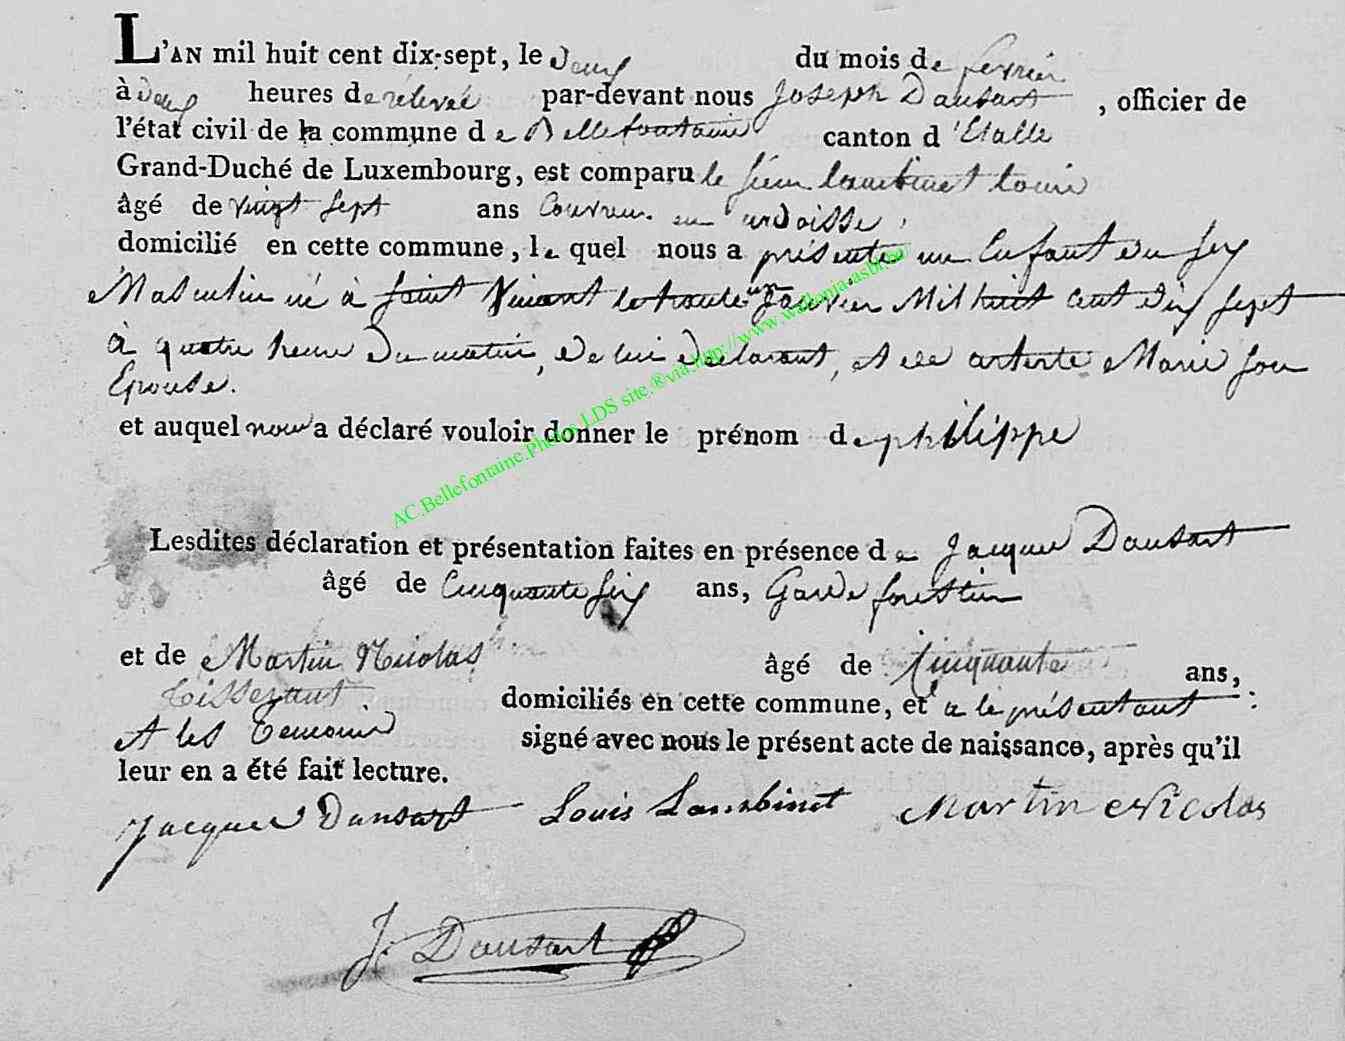 L'AN mil huit cent dix-sept, le deux du mois de fevrier
à deux heures de rélevée par-devant nous Joseph Dansart, officier de
l'état civil de la commune de Bellefontaine canton d'Etalle
Grand-Duché de Luxembourg, est comparu le sieur Lambinet Louis
âgé de vingt sept ans Couvreur en ardoisse,
domicilié en cette commune, le quel nous a présenté un Enfant du sex
Masculin né à Saint Vincent le trente un Janvier Mil huit cent dix sept
à quatre heure du matin, de lui declarant, et de Marie son
Epouse.
et auquel nous a déclaré vouloir donner le prénom de philippe
Lesdites déclaration et présentation faites en présence de Jacques Dansart
âgé de Cinquante six ans, Garde forestier
et de Martin Nicolas âgé de Cinquante ans,
Tisserant domiciliés en cette commune, et a le présentant
et les Temoins signé avec nous le présent acte de naissance, après qu'il
leur en a été fait lecture.
Jacques Dansart Louis Lambinet Martin Nicolas
J. Dansart
AC.Bellefontaine.Photos LDS site.®via http://www.wallonia-asbl.eu